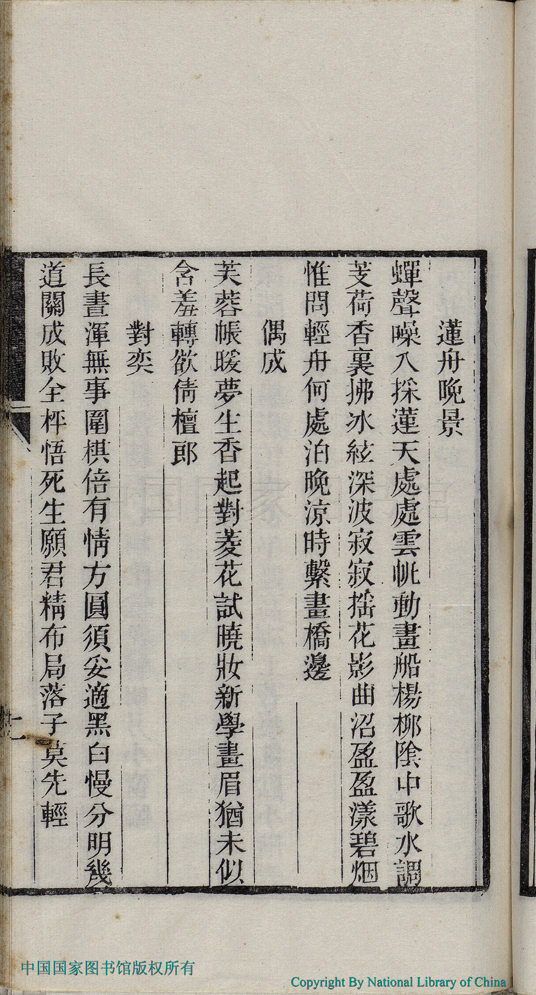 蓮舟晚景
蟬聲噪入採蓮天處處雲帆動畫船楊柳陰中歌水調
芰荷香裏拂冰絃深波寂寂揺花影曲沼盈盈漾碧烟
惟問輕舟何處泊晚涼時繫畫橋邊
偶成
芙蓉帳暖夢生香起對菱花試曉妝新學畫眉猶未似
含羞轉欲倩檀郎
對奕
長晝渾無事圍棋倍有情方圓須妥適黑白慢分明幾
道關成敗全枰悟死生願君精布局落子莫先輕
中国国家图书馆版权所有
Copyright By National Library of China